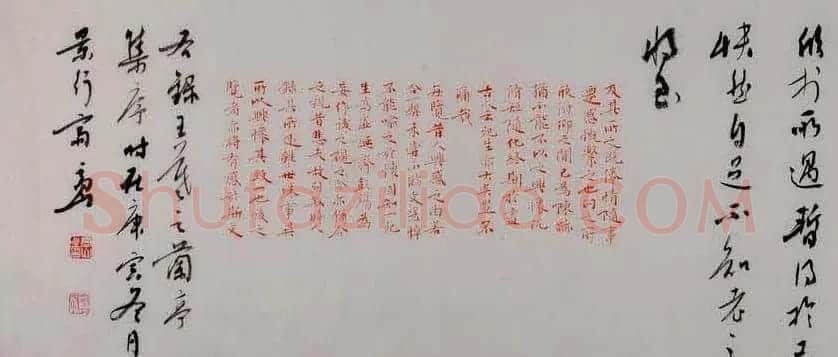 欣於所遇暫得於
快然自足不知老之
將至
及其所之既倦情隨事
遷感慨繫之也向之所
欣俯仰之間已為陳跡
猶不能不以之興懷況
脩短隨化終期
古人云死生亦大矣豈不
痛哉
每覽昔人興感之由若
合一契未嘗不臨文嗟悼
不能喻之於懷固知一死
生為虛誕齊彭殤為
妄作後之視今亦猶今
之視昔悲夫故列敘時
錄其所述雖世殊事異
所以興懷其致一也後之
覽者亦將有感於斯文
右錄王羲之蘭亭
集序時在庚寅冬月
景行
Shufaziliao.COM